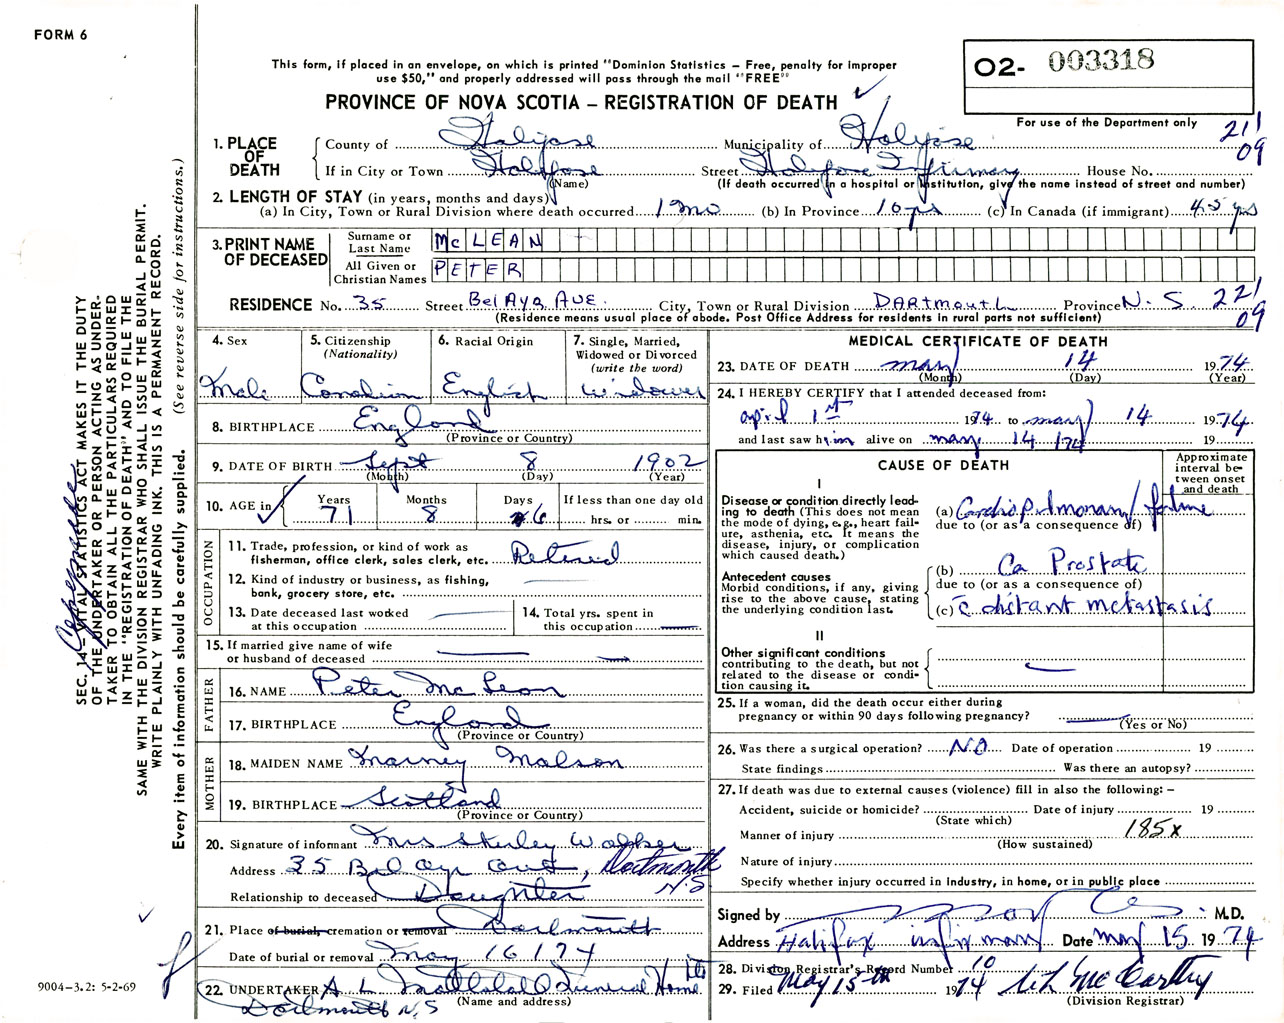 FORM 6
This form, if placed in an envelope, on which is printed "Dominion Statistics – Free, penalty for improper
use $50," and properly addressed will pass through the mail "FREE"
O2- 003318
PROVINCE OF NOVA SCOTIA – REGISTRATION OF DEATH
For use of the Department only
211
09
1. PLACE OF DEATH
County of Halifax Municipality of Halifax
If in City or Town Halifax Street Halifax Infirmary House No.
(Name) (If death occurred in a hospital or institution, give the name instead of street and number)
2. LENGTH OF STAY (in years, months and days)
(a) In City, Town or Rural Division where death occurred 1 mo (b) In Province 10 yrs (c) In Canada (if immigrant) 45 yrs
3. PRINT NAME OF DECEASED
Surname or Last Name McLEAN
All Given or Christian Names PETER
RESIDENCE No. 35 Street Bel Aya Ave. City, Town or Rural Division Dartmouth Province N.S 221
09
(Residence means usual place of abode. Post Office Address for residents in rural parts not sufficient)
4. Sex
Male
5. Citizenship
(Nationality)
Canadian
6. Racial Origin
English
7. Single, Married,
Widowed or Divorced
(write the word)
Widower
8. BIRTHPLACE England
(Province or Country)
9. DATE OF BIRTH Sept 8 1902
(Month) (Day) (Year)
10. AGE in
Years Months Days If less than one day old
71 8 6 hrs. or min.
OCCUPATION
11. Trade, profession, or kind of work as
fisherman, office clerk, sales clerk, etc. Retired
12. Kind of industry or business, as fishing,
bank, grocery store, etc.
13. Date deceased last worked
at this occupation
14. Total yrs. spent in
this occupation
15. If married give name of wife
or husband of deceased
FATHER
16. NAME Peter McLean
17. BIRTHPLACE England
(Province or Country)
MOTHER
18. MAIDEN NAME
19. BIRTHPLACE Scotland
(Province or Country)
20. Signature of informant Mrs Shirley
Address 35 Bel Aya Ave, Dartmouth
N.S
Relationship to deceased Daughter
21. Place of burial, cremation or removal Dartmouth
Date of burial or removal May 16 / 74
22. UNDERTAKER A L Funeral Home Ltd
(Name and address)
Dartmouth N.S
MEDICAL CERTIFICATE OF DEATH
23. DATE OF DEATH May 14 1974
(Month) (Day) (Year)
24. I HEREBY CERTIFY that I attended deceased from:
April 1st 1974 to May 14 1974
and last saw him alive on May 14 / 74 19
CAUSE OF DEATH
Approximate
interval be-
tween onset
and death
I
Disease or condition directly lead-
ing to death (This does not mean
the mode of dying, e.g., heart fail-
ure, asthenia, etc. It means the
disease, injury, or complication
which caused death.)
(a) Cardio pulmonary failure
due to (or as a consequence of)
Antecedent causes
Morbid conditions, if any, giving
rise to the above cause, stating
the underlying condition last.
(b) Ca Prostate
due to (or as a consequence of)
(c) c̄ distant metastasis
II
Other significant conditions
contributing to the death, but not
related to the disease or condi-
tion causing it.
25. If a woman, did the death occur either during
pregnancy or within 90 days following pregnancy?
(Yes or No)
26. Was there a surgical operation? NO Date of operation 19
State findings Was there an autopsy?
27. If death was due to external causes (violence) fill in also the following: –
Accident, suicide or homicide? Date of injury 19
(State which)
185x
Manner of injury
(How sustained)
Nature of injury
Specify whether injury occurred in Industry, in home, or in public place
Signed by M.D.
Address Halifax infirmary Date May 15 1974
28. Division Registrar's Record Number 10
29. Filed May 15th 1974 McCarthy
(Division Registrar)
SEC. 14 – VITAL STATISTICS ACT MAKES IT THE DUTY
OF THE UNDERTAKER OR PERSON ACTING AS UNDER-
TAKER TO OBTAIN ALL THE PARTICULARS REQUIRED
IN THE "REGISTRATION OF DEATH" AND TO FILE THE
SAME WITH THE DIVISION REGISTRAR WHO SHALL ISSUE THE BURIAL PERMIT.
WRITE PLAINLY WITH UNFADING INK. THIS IS A PERMANENT RECORD.
Every item of information should be carefully supplied. (See reverse side for instructions.)
9004-3.2: 5-2-69